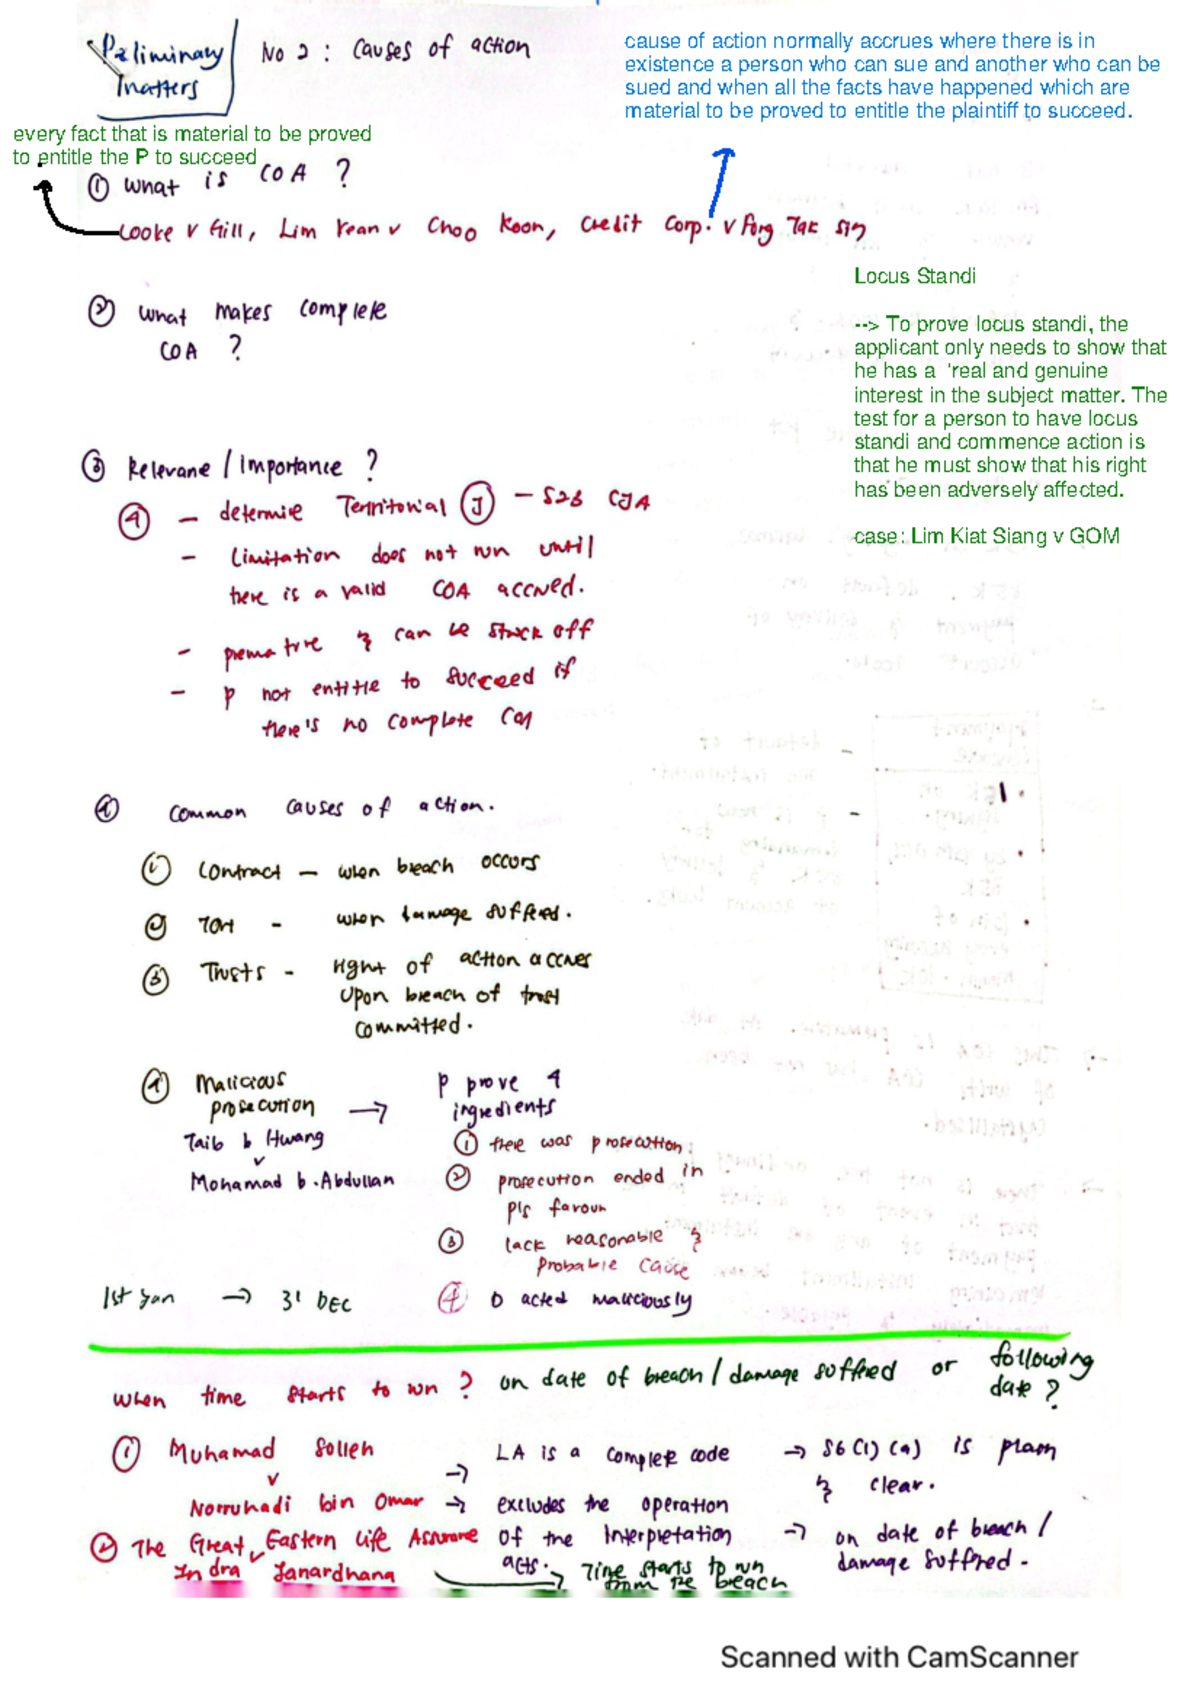 Preliminary
matters
No 2 : Causes of action
cause of action normally accrues where there is in
existence a person who can sue and another who can be
sued and when all the facts have happened which are
material to be proved to entitle the plaintiff to succeed.
every fact that is material to be proved
to entitle the P to succeed
① what is COA ?
Cooke v Gill, Lim Kean v Choo Koon, Credit Corp. v Fong Tak Sin
Locus Standi
--> To prove locus standi, the
applicant only needs to show that
he has a 'real and genuine
interest in the subject matter. The
test for a person to have locus
standi and commence action is
that he must show that his right
has been adversely affected.
case: Lim Kiat Siang v GOM
② what makes complete
COA ?
③ Relevane / importance ?
④ - determine Territorial Ⓙ - S23 CJA
- Limitation does not run until
there is a valid COA accrued.
- premature & can be struck off
- P not entitle to succeed if
there's no complete COA
④ Common causes of action.
① Contract - when breach occurs
② Tort - when damage suffered.
③ Trusts - right of action accrues
upon breach of trust
committed.
④ Malicious
prosecution → P prove 4
ingredients
Taib b Hwang
v
Mohamad b. Abdullah
① there was prosecution
② prosecution ended in
P's favour
③ lack reasonable &
probable cause
④ D acted maliciously
1st Jan → 31 DEC
when time starts to run ? on date of breach / damage suffered or following
date ?
① Muhamad Solleh
v
Norruhadi bin Omar
→ LA is a complete code → S6 (1) (a) is plain
& clear.
→ excludes the operation
of the Interpretation
acts.
→ on date of breach /
damage suffered.
② The Great Eastern Life Assurance
v
Indra Janardhana
→ Time starts to run
from the breach
Scanned with CamScanner